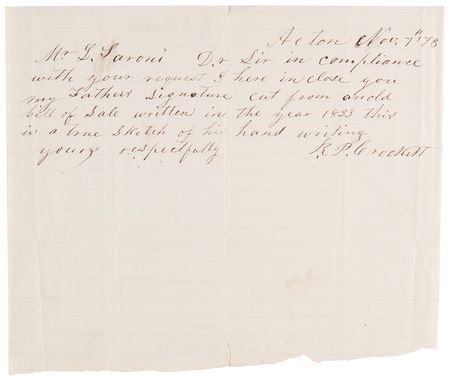 Acton Nov. 7th 78
Mr L. Saroni Dr Sir in compliance
with your request I here in close you
my Fathers Signature cut from an old
bill of Sale written in the year 1833 this
is a true Sketch of his hand writing
yours respectfully R. P. Crockett